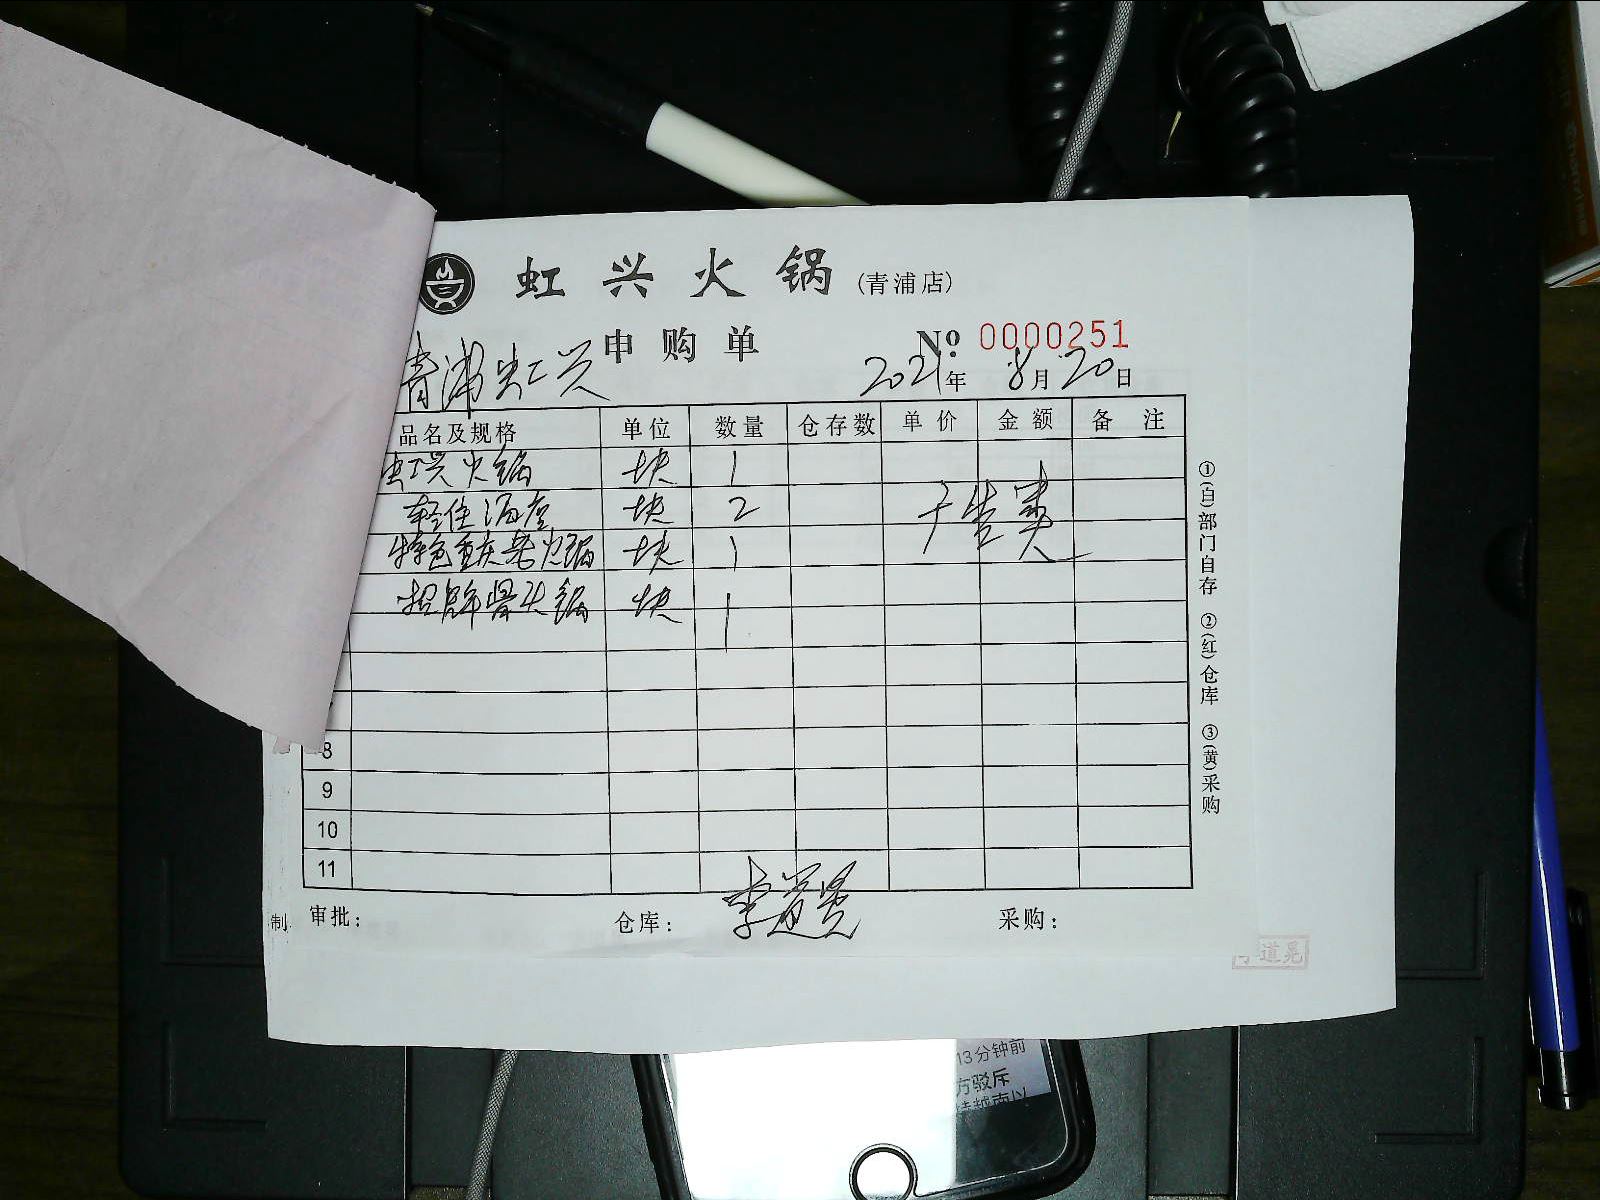 虹兴火锅(青浦店)
申购单
No 0000251
青浦虹兴
2021年8月20日
品名及规格 单位 数量 仓存数 单价 金额 备注
虹兴火锅 块 1
轻住酒店 块 2
特色重庆老火锅 块 1
招牌骨头锅 块 1
广告类
8
9
10
11
审批: 仓库: 李道晃 采购:
①(白)部门自存 ②(红)仓库 ③(黄)采购
制
道晃
13分钟前
方驳斥